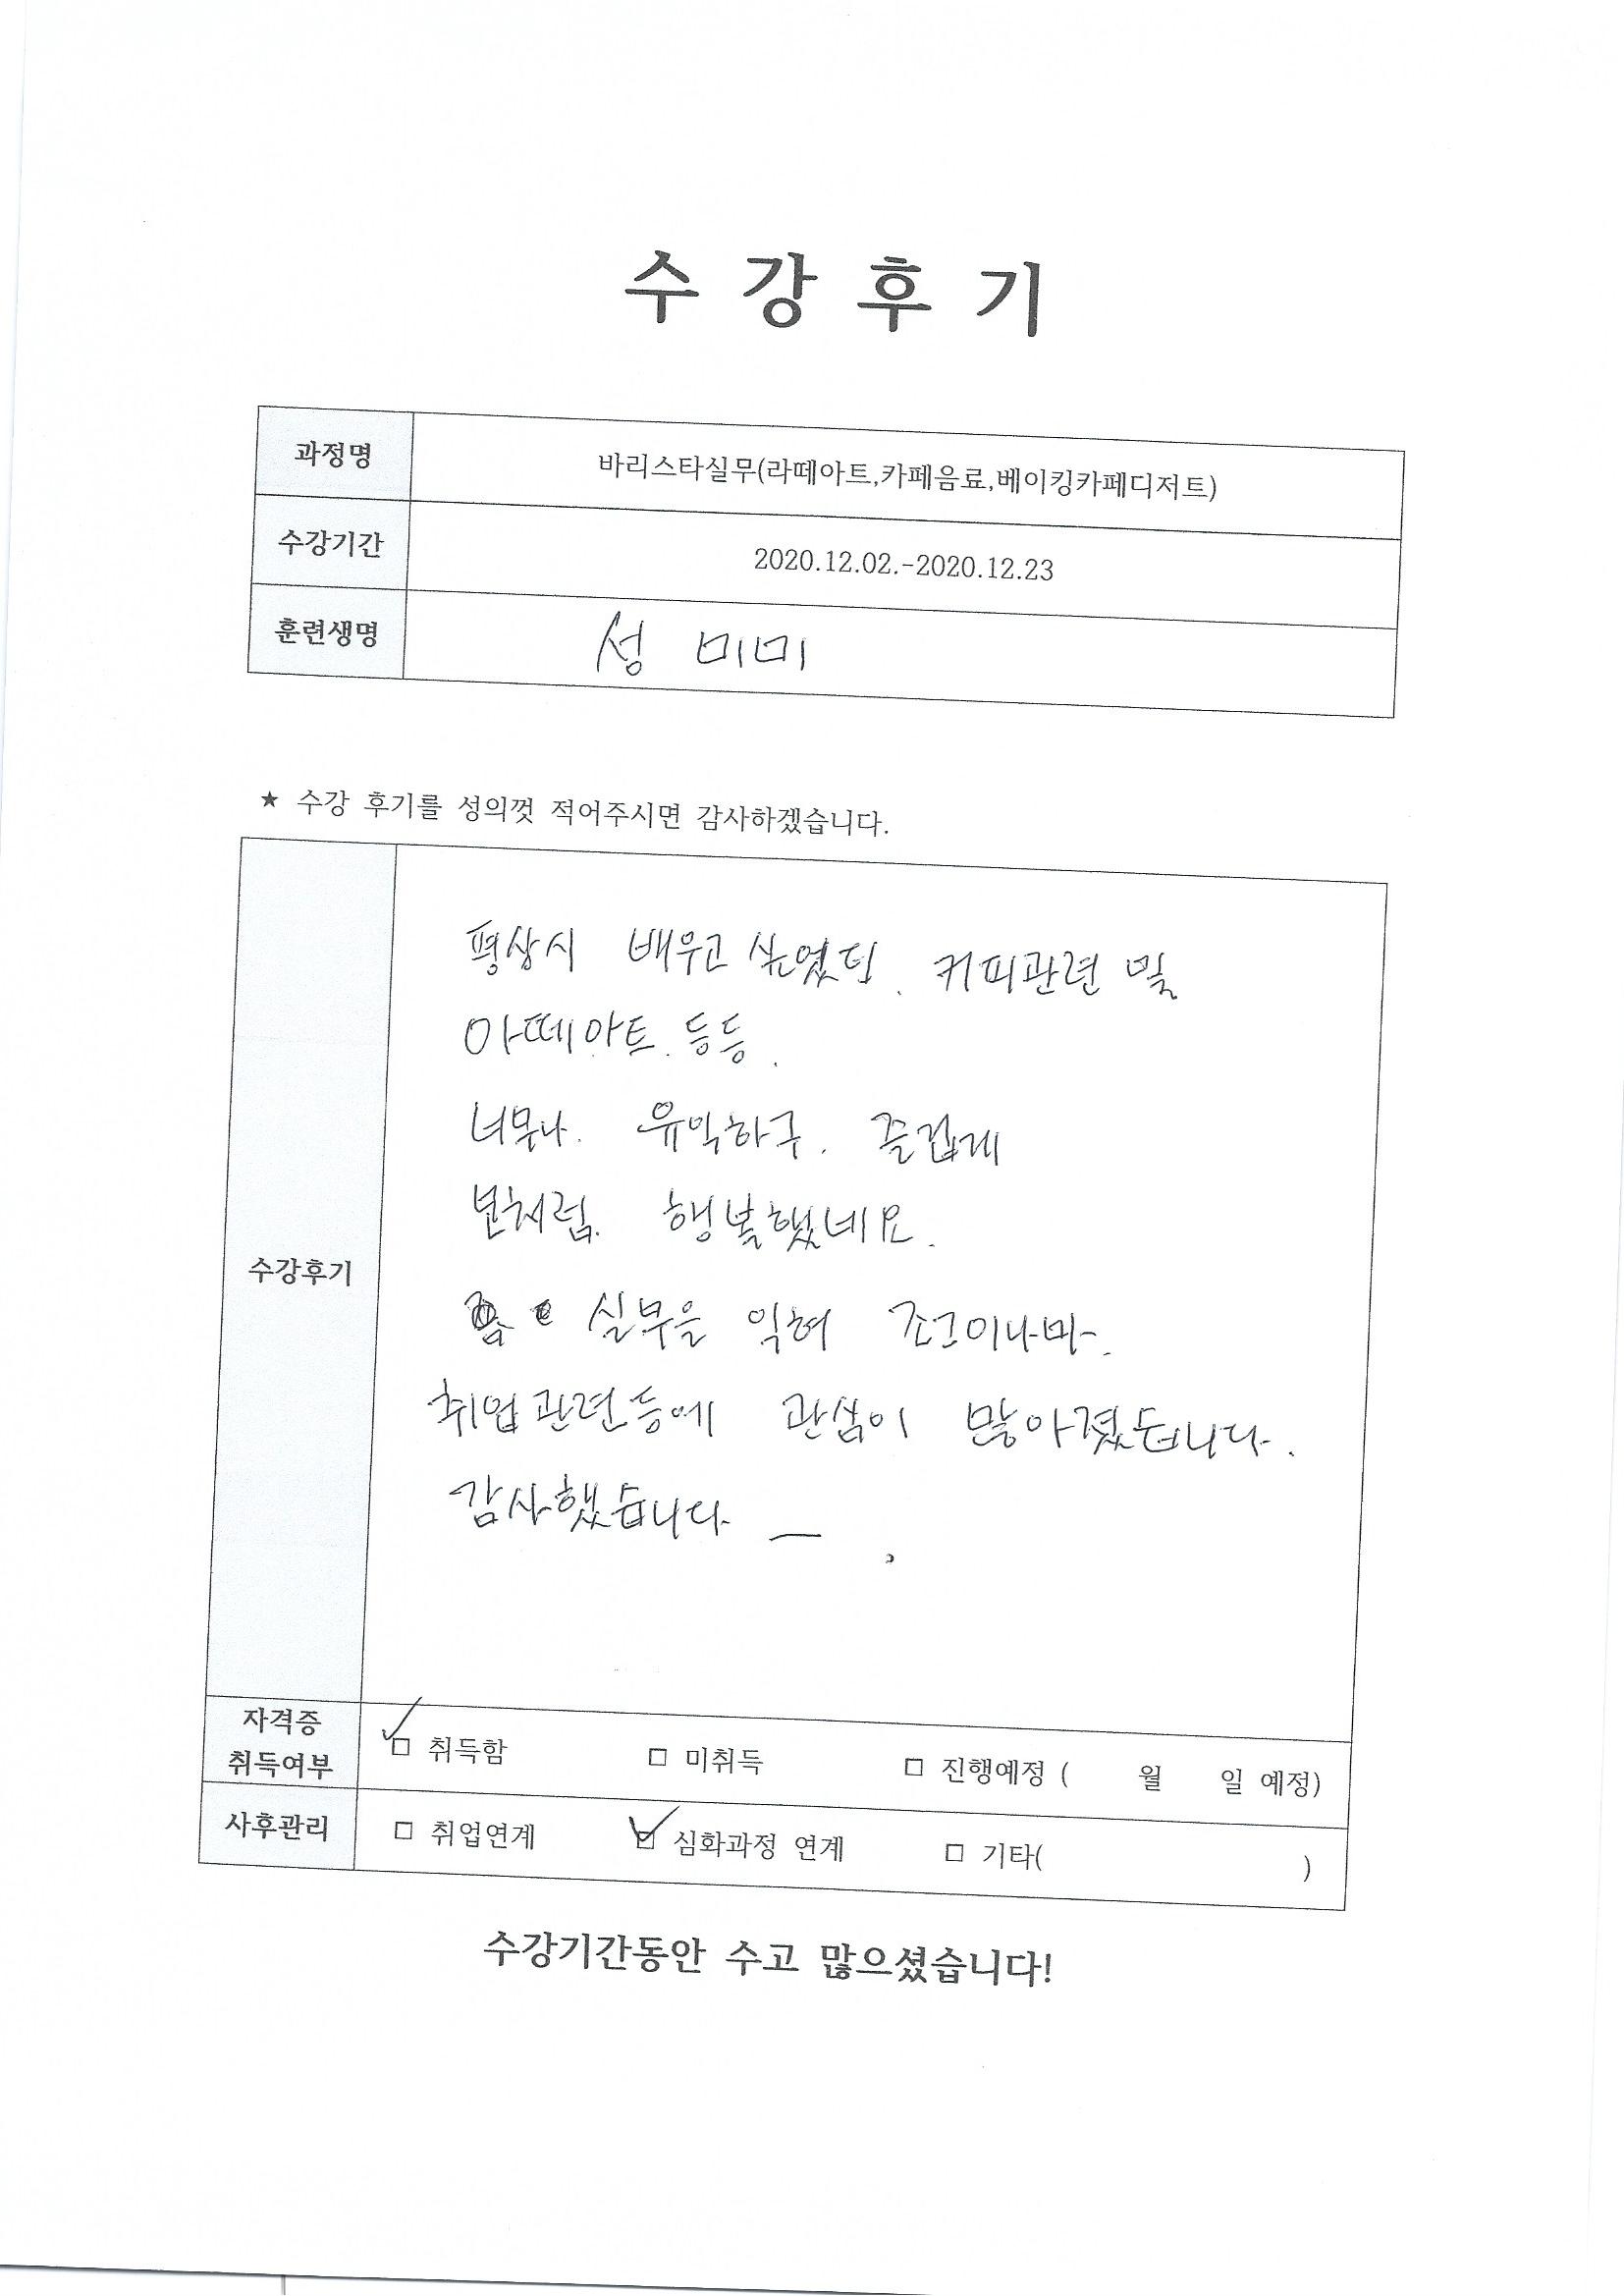 수 강 후 기
과정명 바리스타실무(라떼아트,카페음료,베이킹카페디저트)
수강기간 2020.12.02.-2020.12.23
훈련생명 성 미미
★ 수강 후기를 성의껏 적어주시면 감사하겠습니다.
수강후기
평상시 배우고 싶었던. 커피관련 및
아떼아트. 등등.
너무나. 유익하구. 즐겁게
행복했네요.
실무을 익혀 조그이나마.
취업관련등에 관심이 많아졌습니다.
감사했습니다 —.
자격증 취득여부 ☑ 취득함 □ 미취득 □ 진행예정 ( 월 일 예정)
사후관리 □ 취업연계 ☑ 심화과정 연계 □ 기타( )
수강기간동안 수고 많으셨습니다!